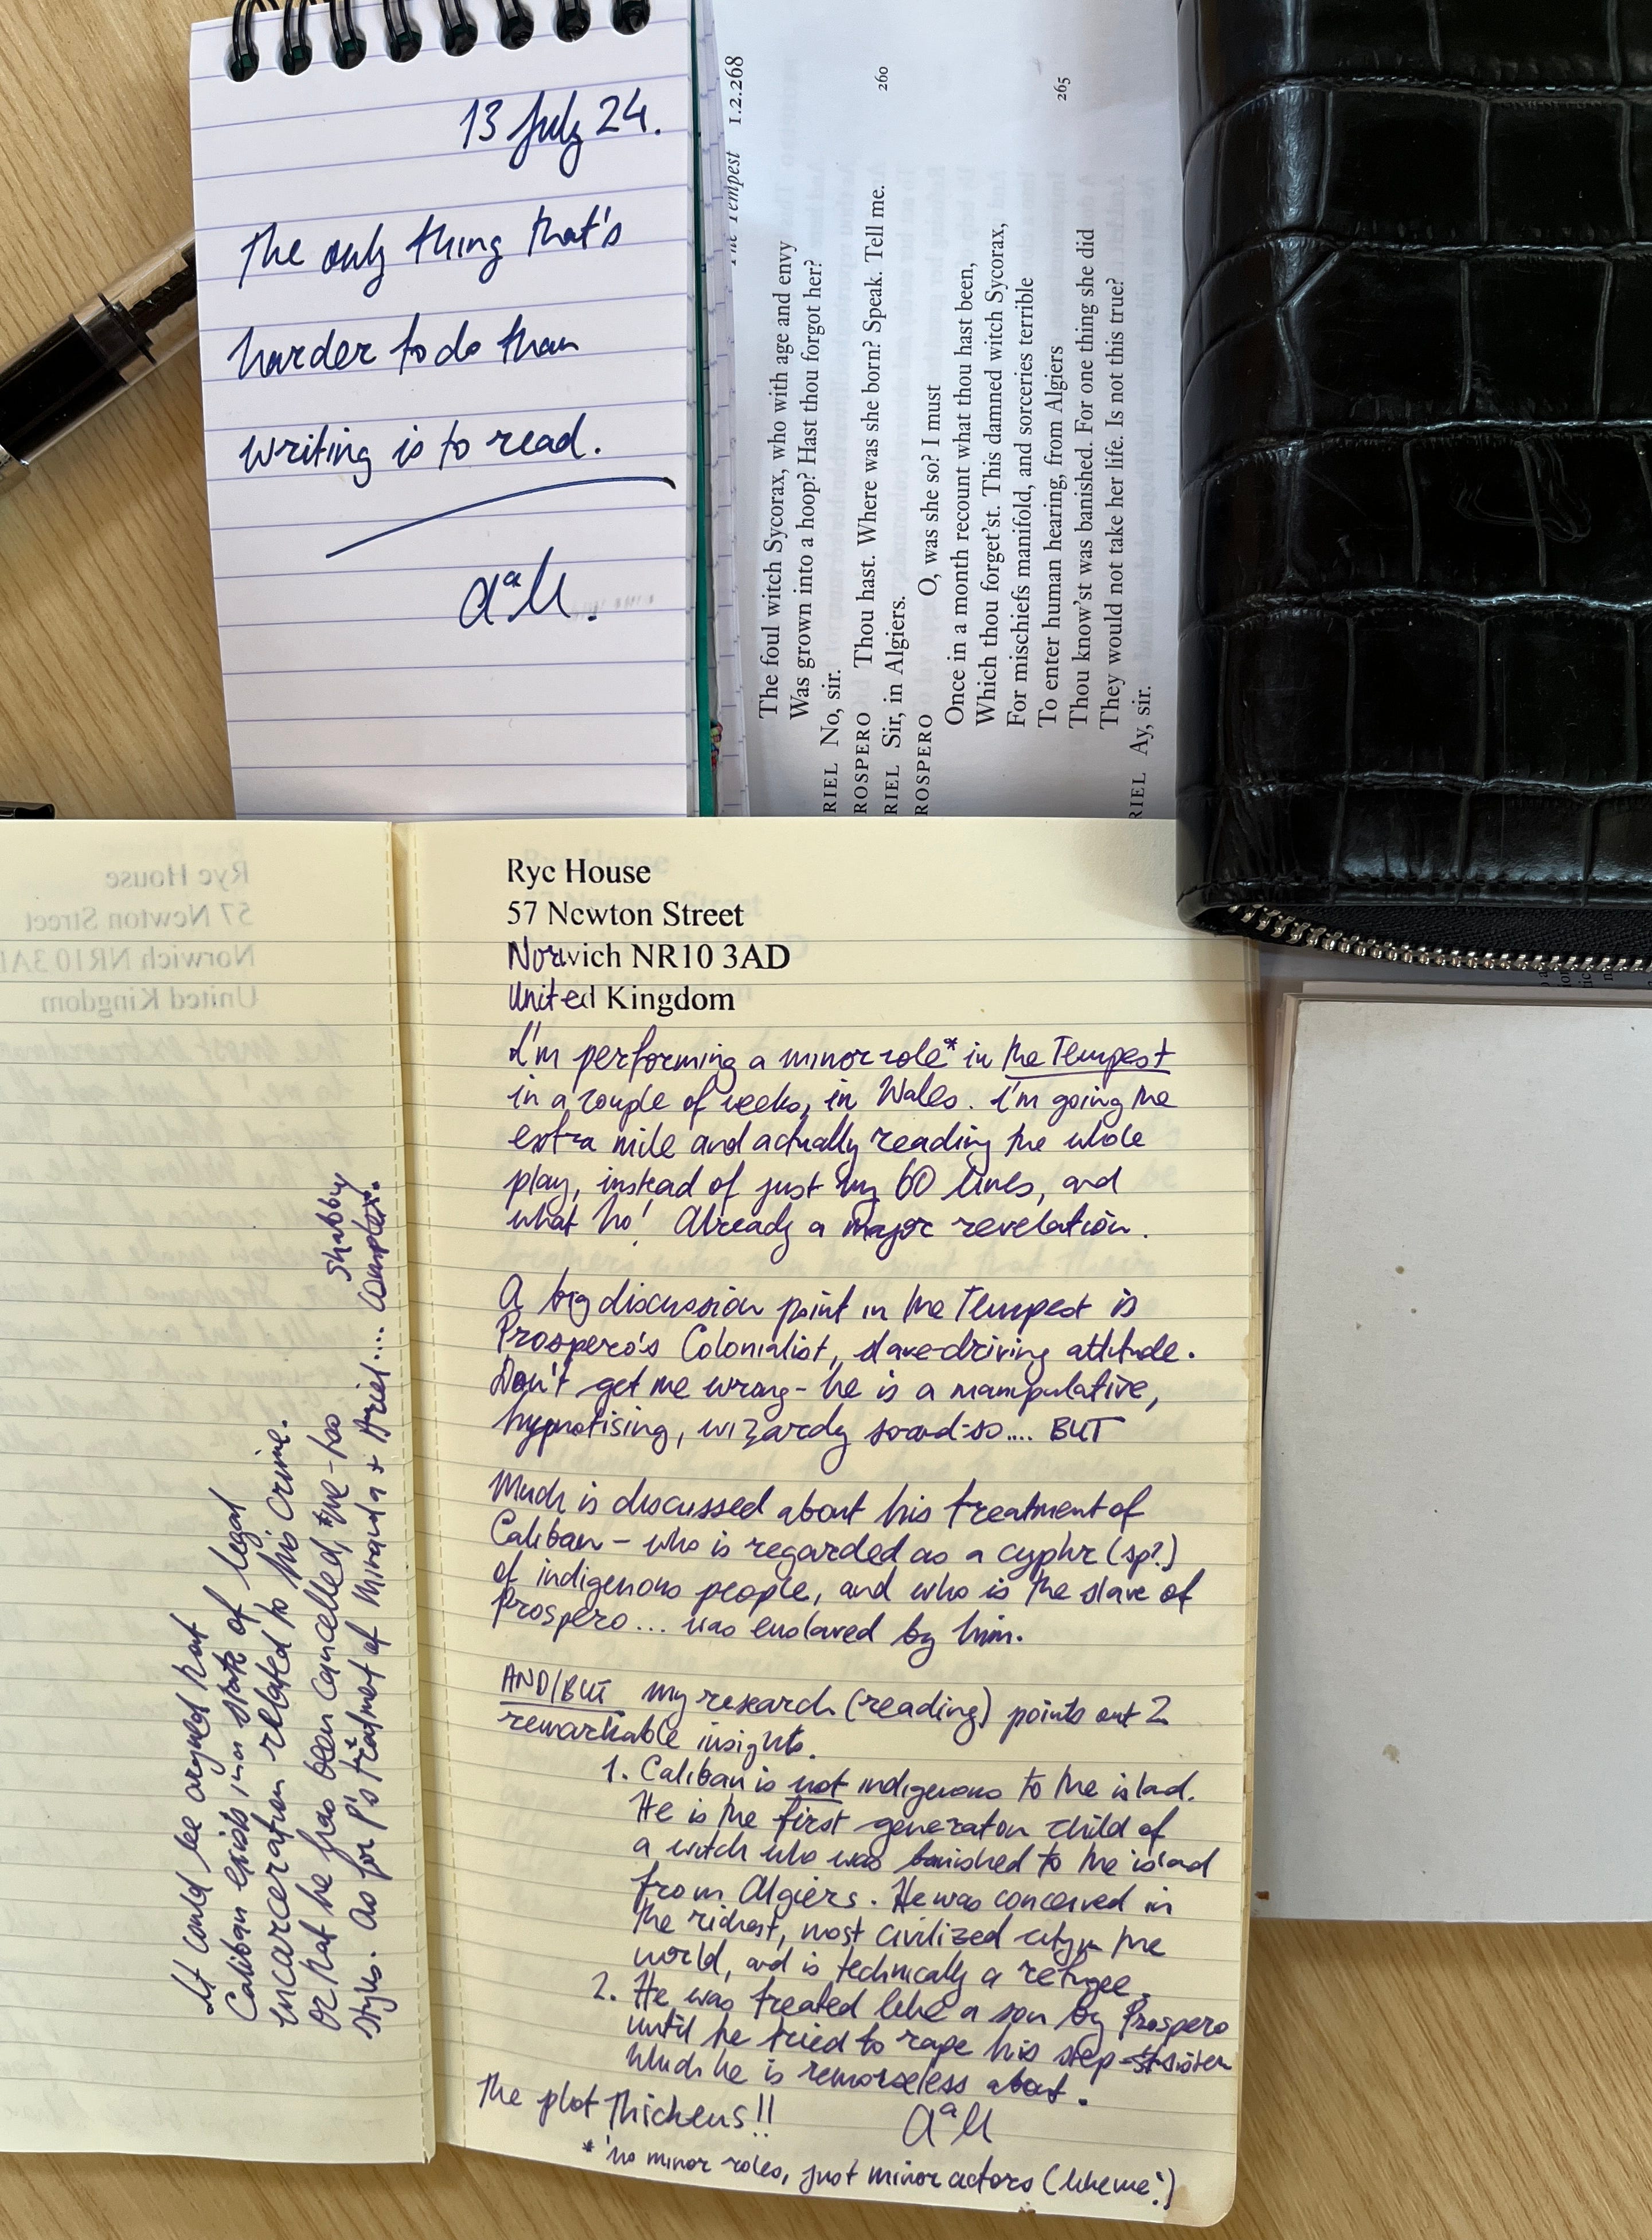 13 July 24.
The only thing that's
harder to do than
writing is to read.
aªM.
The Tempest 1.2.268
The foul witch Sycorax, who with age and envy
Was grown into a hoop? Hast thou forgot her?
RIEL No, sir.
ROSPERO Thou hast. Where was she born? Speak. Tell me.
RIEL Sir, in Algiers. 260
ROSPERO O, was she so? I must
Once in a month recount what thou hast been,
Which thou forget'st. This damned witch Sycorax,
For mischiefs manifold, and sorceries terrible
To enter human hearing, from Algiers 265
Thou know'st was banished. For one thing she did
They would not take her life. Is not this true?
RIEL Ay, sir.
Rye House
57 Newton Street
Norwich NR10 3AD
United Kingdom
I'm performing a minor role* in The Tempest
in a couple of weeks, in Wales. I'm going the
extra mile and actually reading the whole
play, instead of just my 60 lines, and
what ho! Already a major revelation.
A big discussion point in the Tempest is
Prospero's Colonialist, slave-driving attitude.
Don't get me wrong - he is a manipulative,
hypnotising, wizardy so-and-so.... BUT
Much is discussed about his treatment of
Caliban - who is regarded as a cyphr (sp?)
of indigenous people, and who is the slave of
Prospero... was enslaved by him.
AND/BUT my research (reading) points out 2
remarkable insights.
1. Caliban is not indigenous to the islad.
He is the first generaton child of
a witch who was banished to the islad
from Algiers. He was conceived in
the richest, most civilized city in the
world, and is technically a refugee.
2. He was treated like a son by Prospero
until he tried to rape his step-sister
which he is remorseless about!
The plot thickens!!
aªM
* 'no minor roles, just minor actors (like me!)
It could be argued that
Caliban exists in a state of legal
incarceration related to his crime.
Or that he has been cancelled, #me-too
style. As for P's treatment of Miranda + Ariel.... complex.
shabby
Rye House
57 Newton Street
Norwich NR10 3AD
United Kingdom